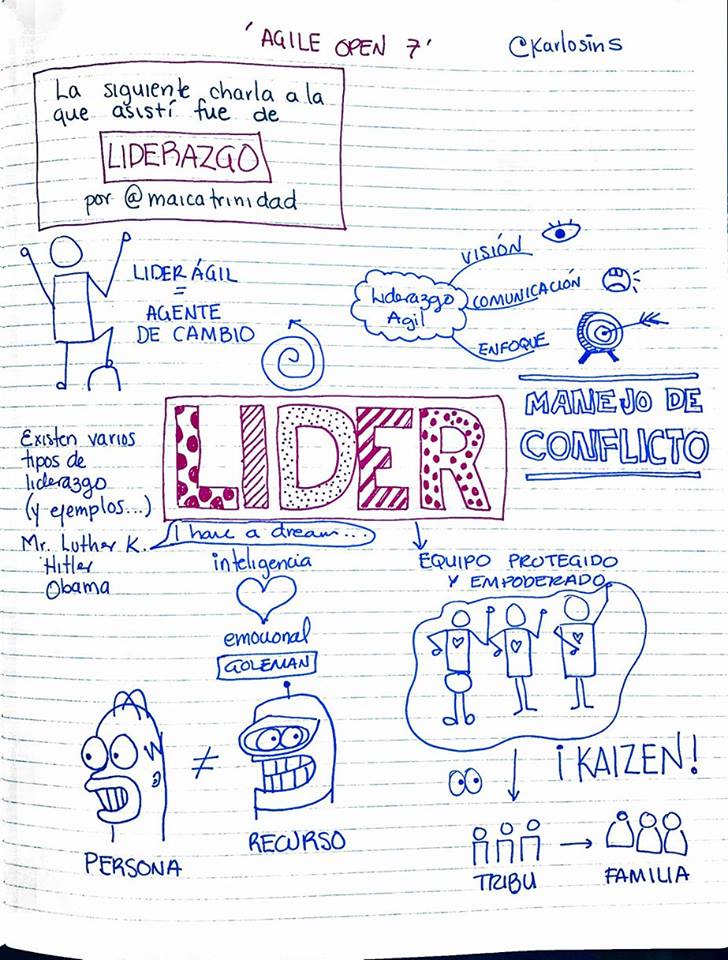 'AGILE OPEN 7'
@Karlosins
La siguiente charla a la
que asistí fue de
LIDERAZGO
por @maicatrinidad
LIDER ÁGIL
=
AGENTE
DE CAMBIO
Liderazgo
Agil
VISIÓN
COMUNICACIÓN
ENFOQUE
MANEJO DE
CONFLICTO
LIDER
Existen varios
tipos de
liderazgo
(y ejemplos...)
Mr. Luther K.
Hitler
Obama
I have a dream...
inteligencia
emocional
GOLEMAN
EQUIPO PROTEGIDO
Y EMPODERADO
PERSONA
≠
RECURSO
¡KAIZEN!
TRIBU
FAMILIA